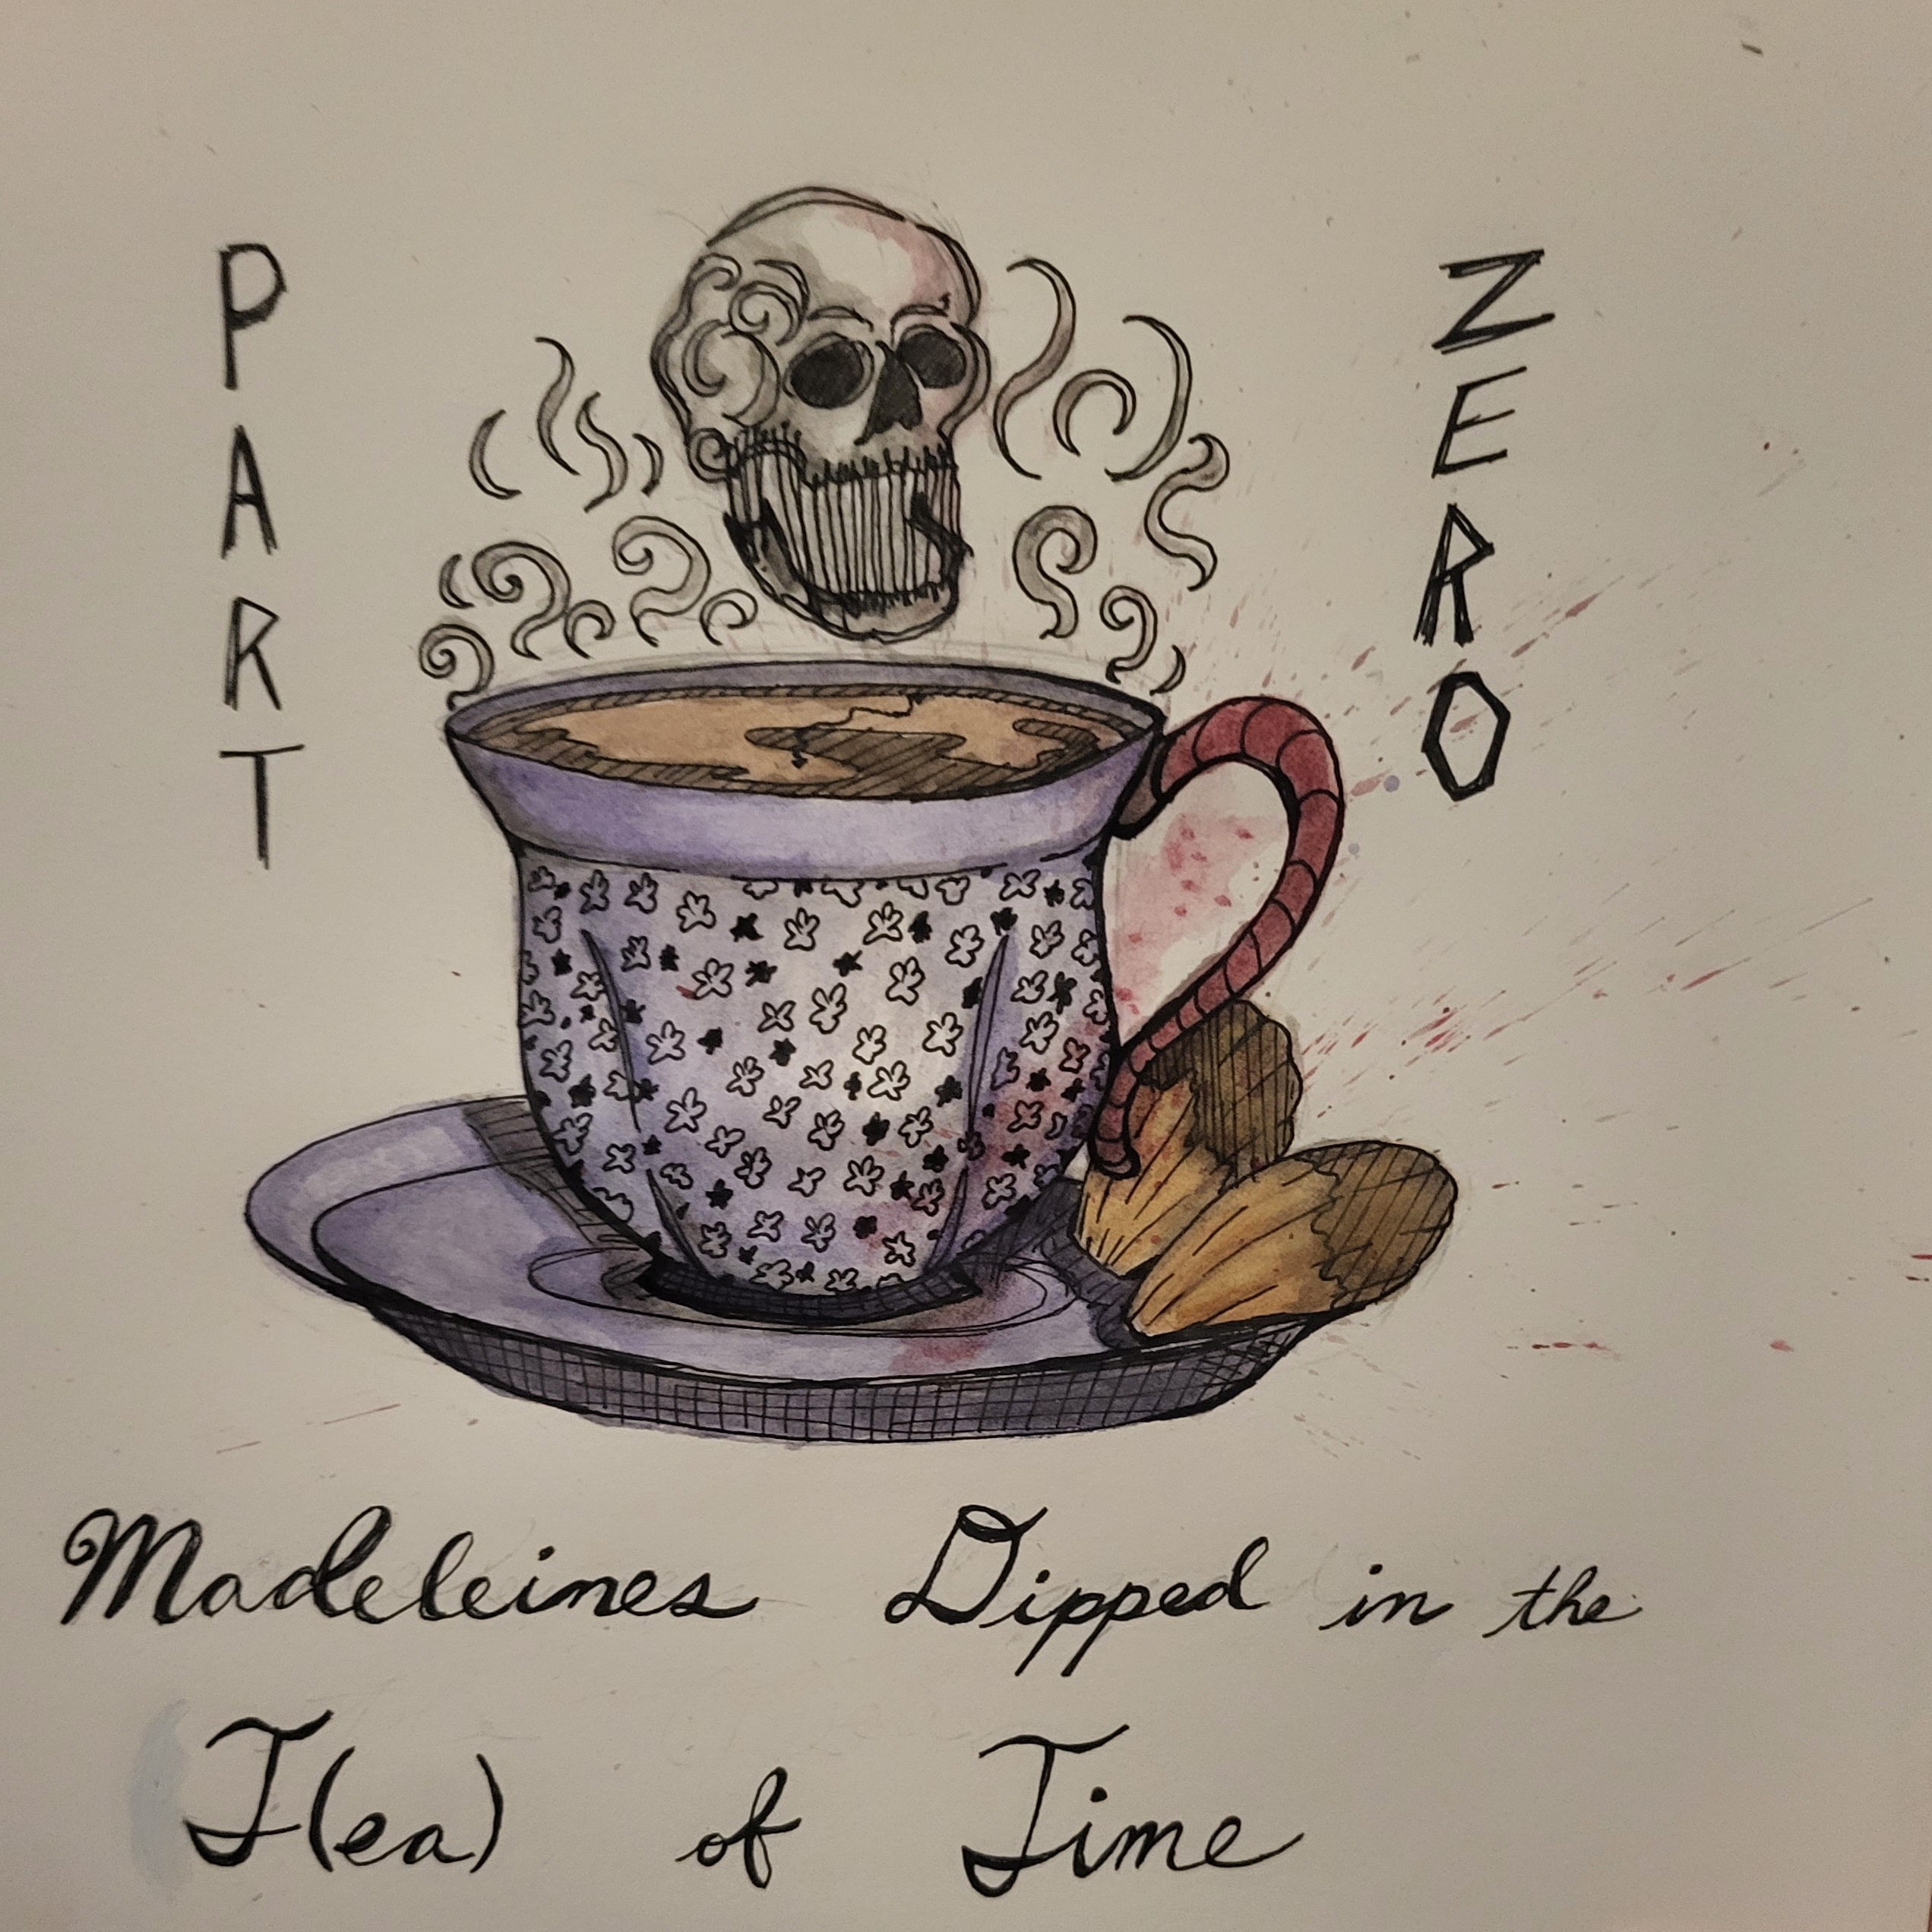 PART
ZERO
Madeleines Dipped in the
T(ea) of Time